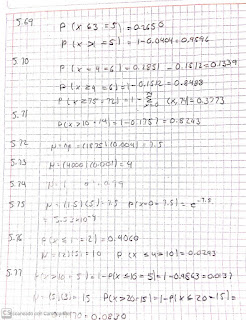 5.69 P(x ≤ 3 = 5) = 0.2650
P(x > 1 = 5) = 1 - 0.0404 = 0.9596
5.70 P(x = 4 = 6) = 0.2851 - 0.1512 = 0.1339
P(x ≥ 4 = 6) = 1 - 0.1512 = 0.8488
P(x ≥ 75 = 72) = 1 - Σ (x, 72) = 0.3773
5.71 P(x > 10 = 14) = 1 - 0.1757 = 0.8243
5.72 μ = np = (1875)(0.004) = 7.5
5.73 μ = (4000)(0.001) = 4
5.74 μ = 1
5.75 μ = (1.5)(5) = 7.5 P(x = 0 = 7.5) = e^-7.5
= 5.53×10⁻⁴
5.76 P(x ≤ 1 = 2) = 0.4060
μ = (2)(5) = 10 P(x ≤ 4 = 10) = 0.0293
5.77 P(x > 10 = 5) = 1 - P(x ≤ 10 = 5) = 1 - 0.9863 = 0.0137
μ = (5)(3) = 15 P(x > 20 = 15) = 1 - P(x ≤ 20 = 15) =
170 = 0.0830
Scanned with CamScanner